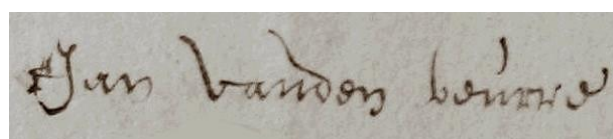 Jan vanden beurre